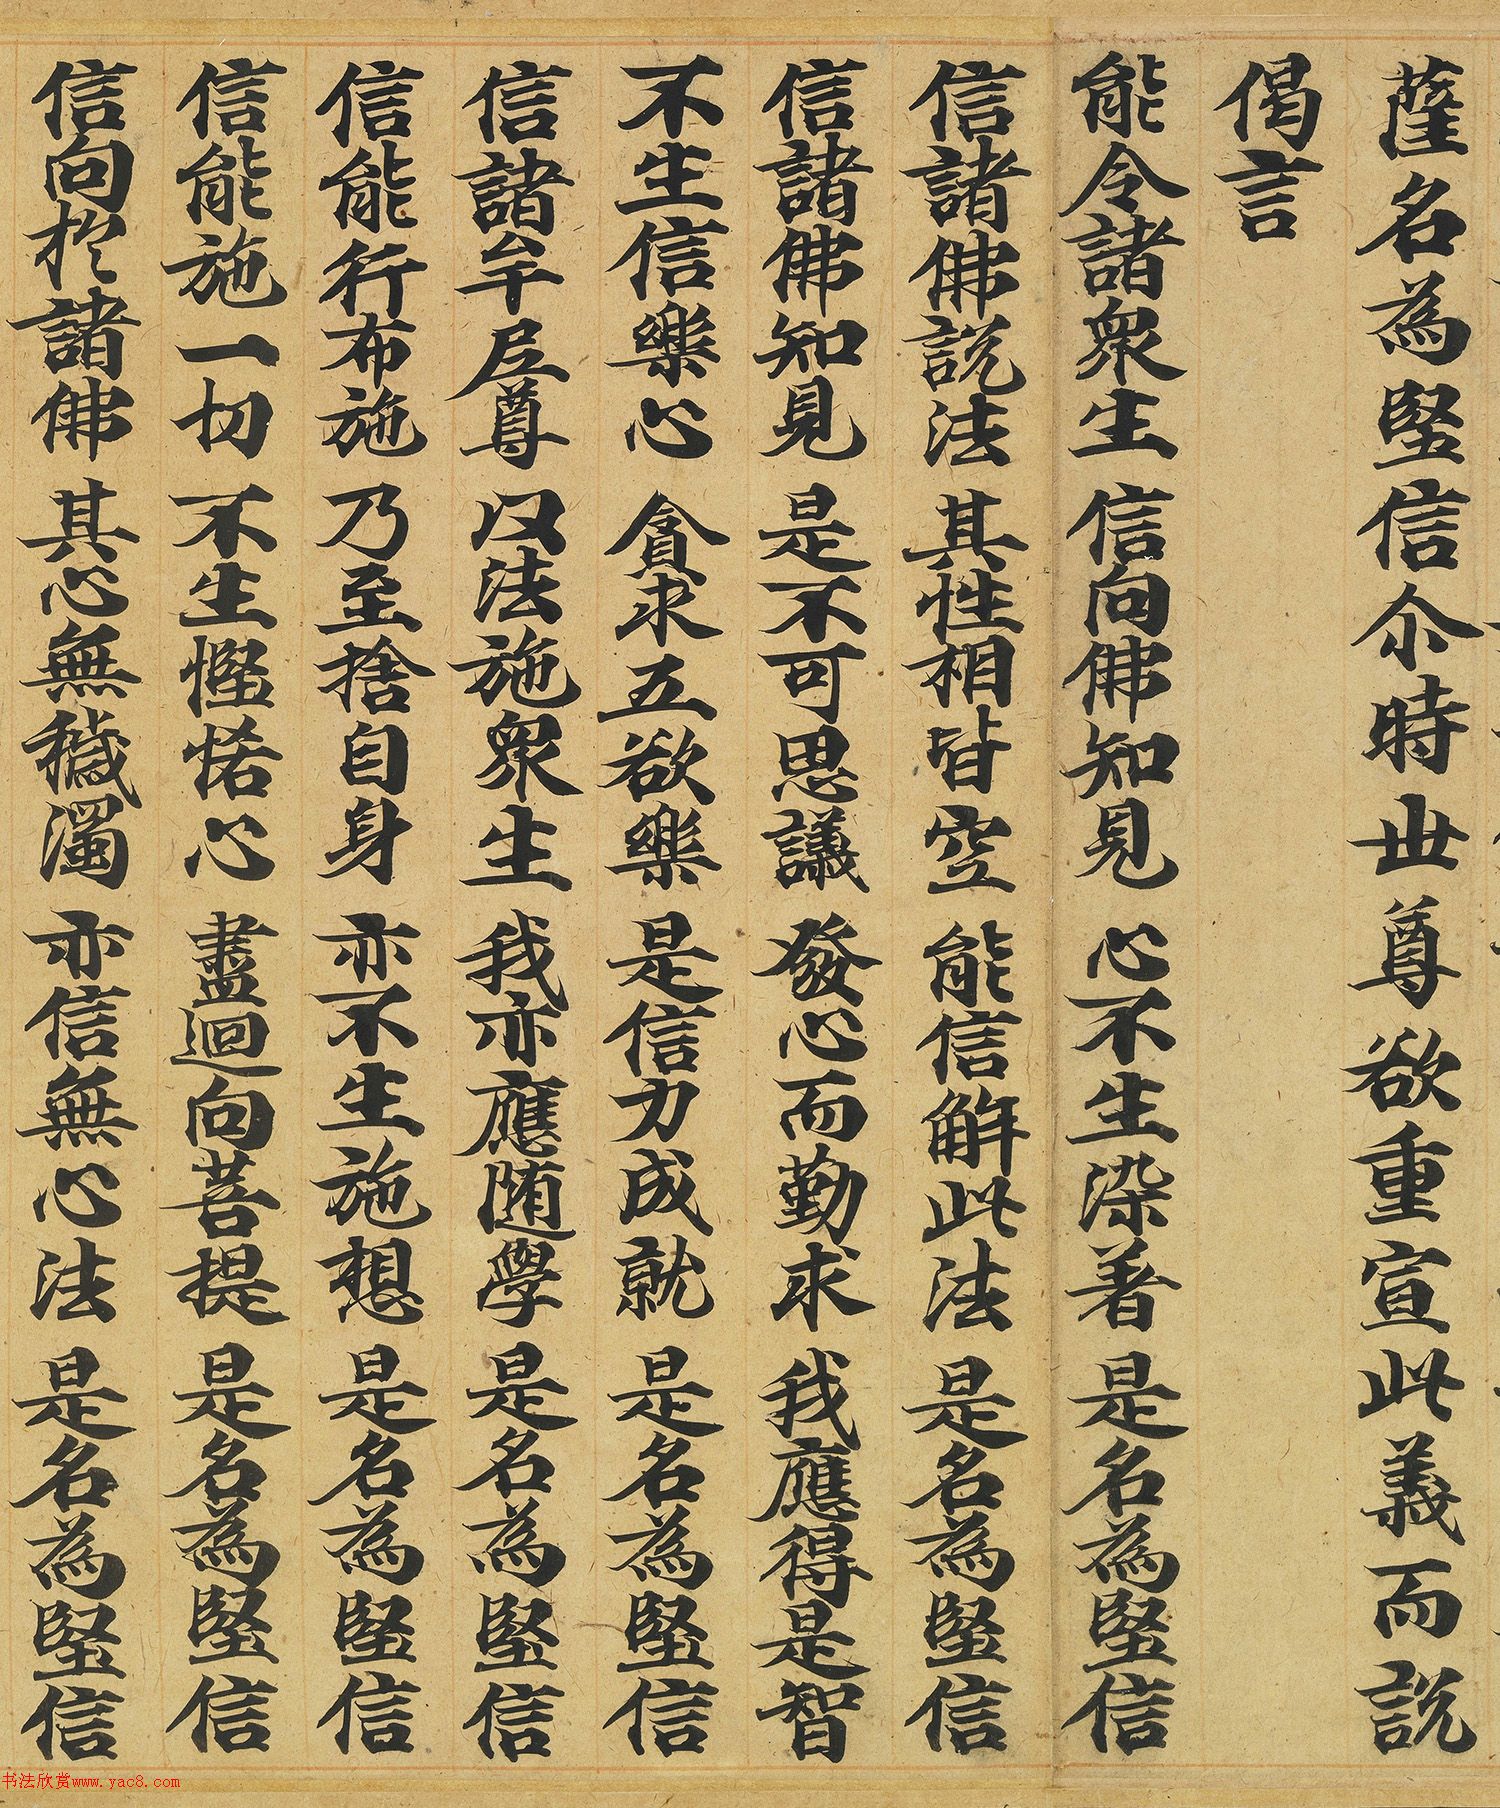 薩名為堅信尒時世尊欲重宣此義而說
偈言
能令諸衆生 信向佛知見 心不生染著 是名為堅信
信諸佛說法 其性相皆空 能信解此法 是名為堅信
信諸佛知見 是不可思議 發心而勤求 我應得是智
不生信樂心 貪求五欲樂 是信力成就 是名為堅信
信諸牟尼尊 以法施衆生 我亦應随學 是名為堅信
信能行布施 乃至捨自身 亦不生施想 是名為堅信
信能施一切 不生慳悋心 盡迴向菩提 是名為堅信
信向於諸佛 其心無穢濁 亦信無心法 是名為堅信
书法欣赏www.yac8.com